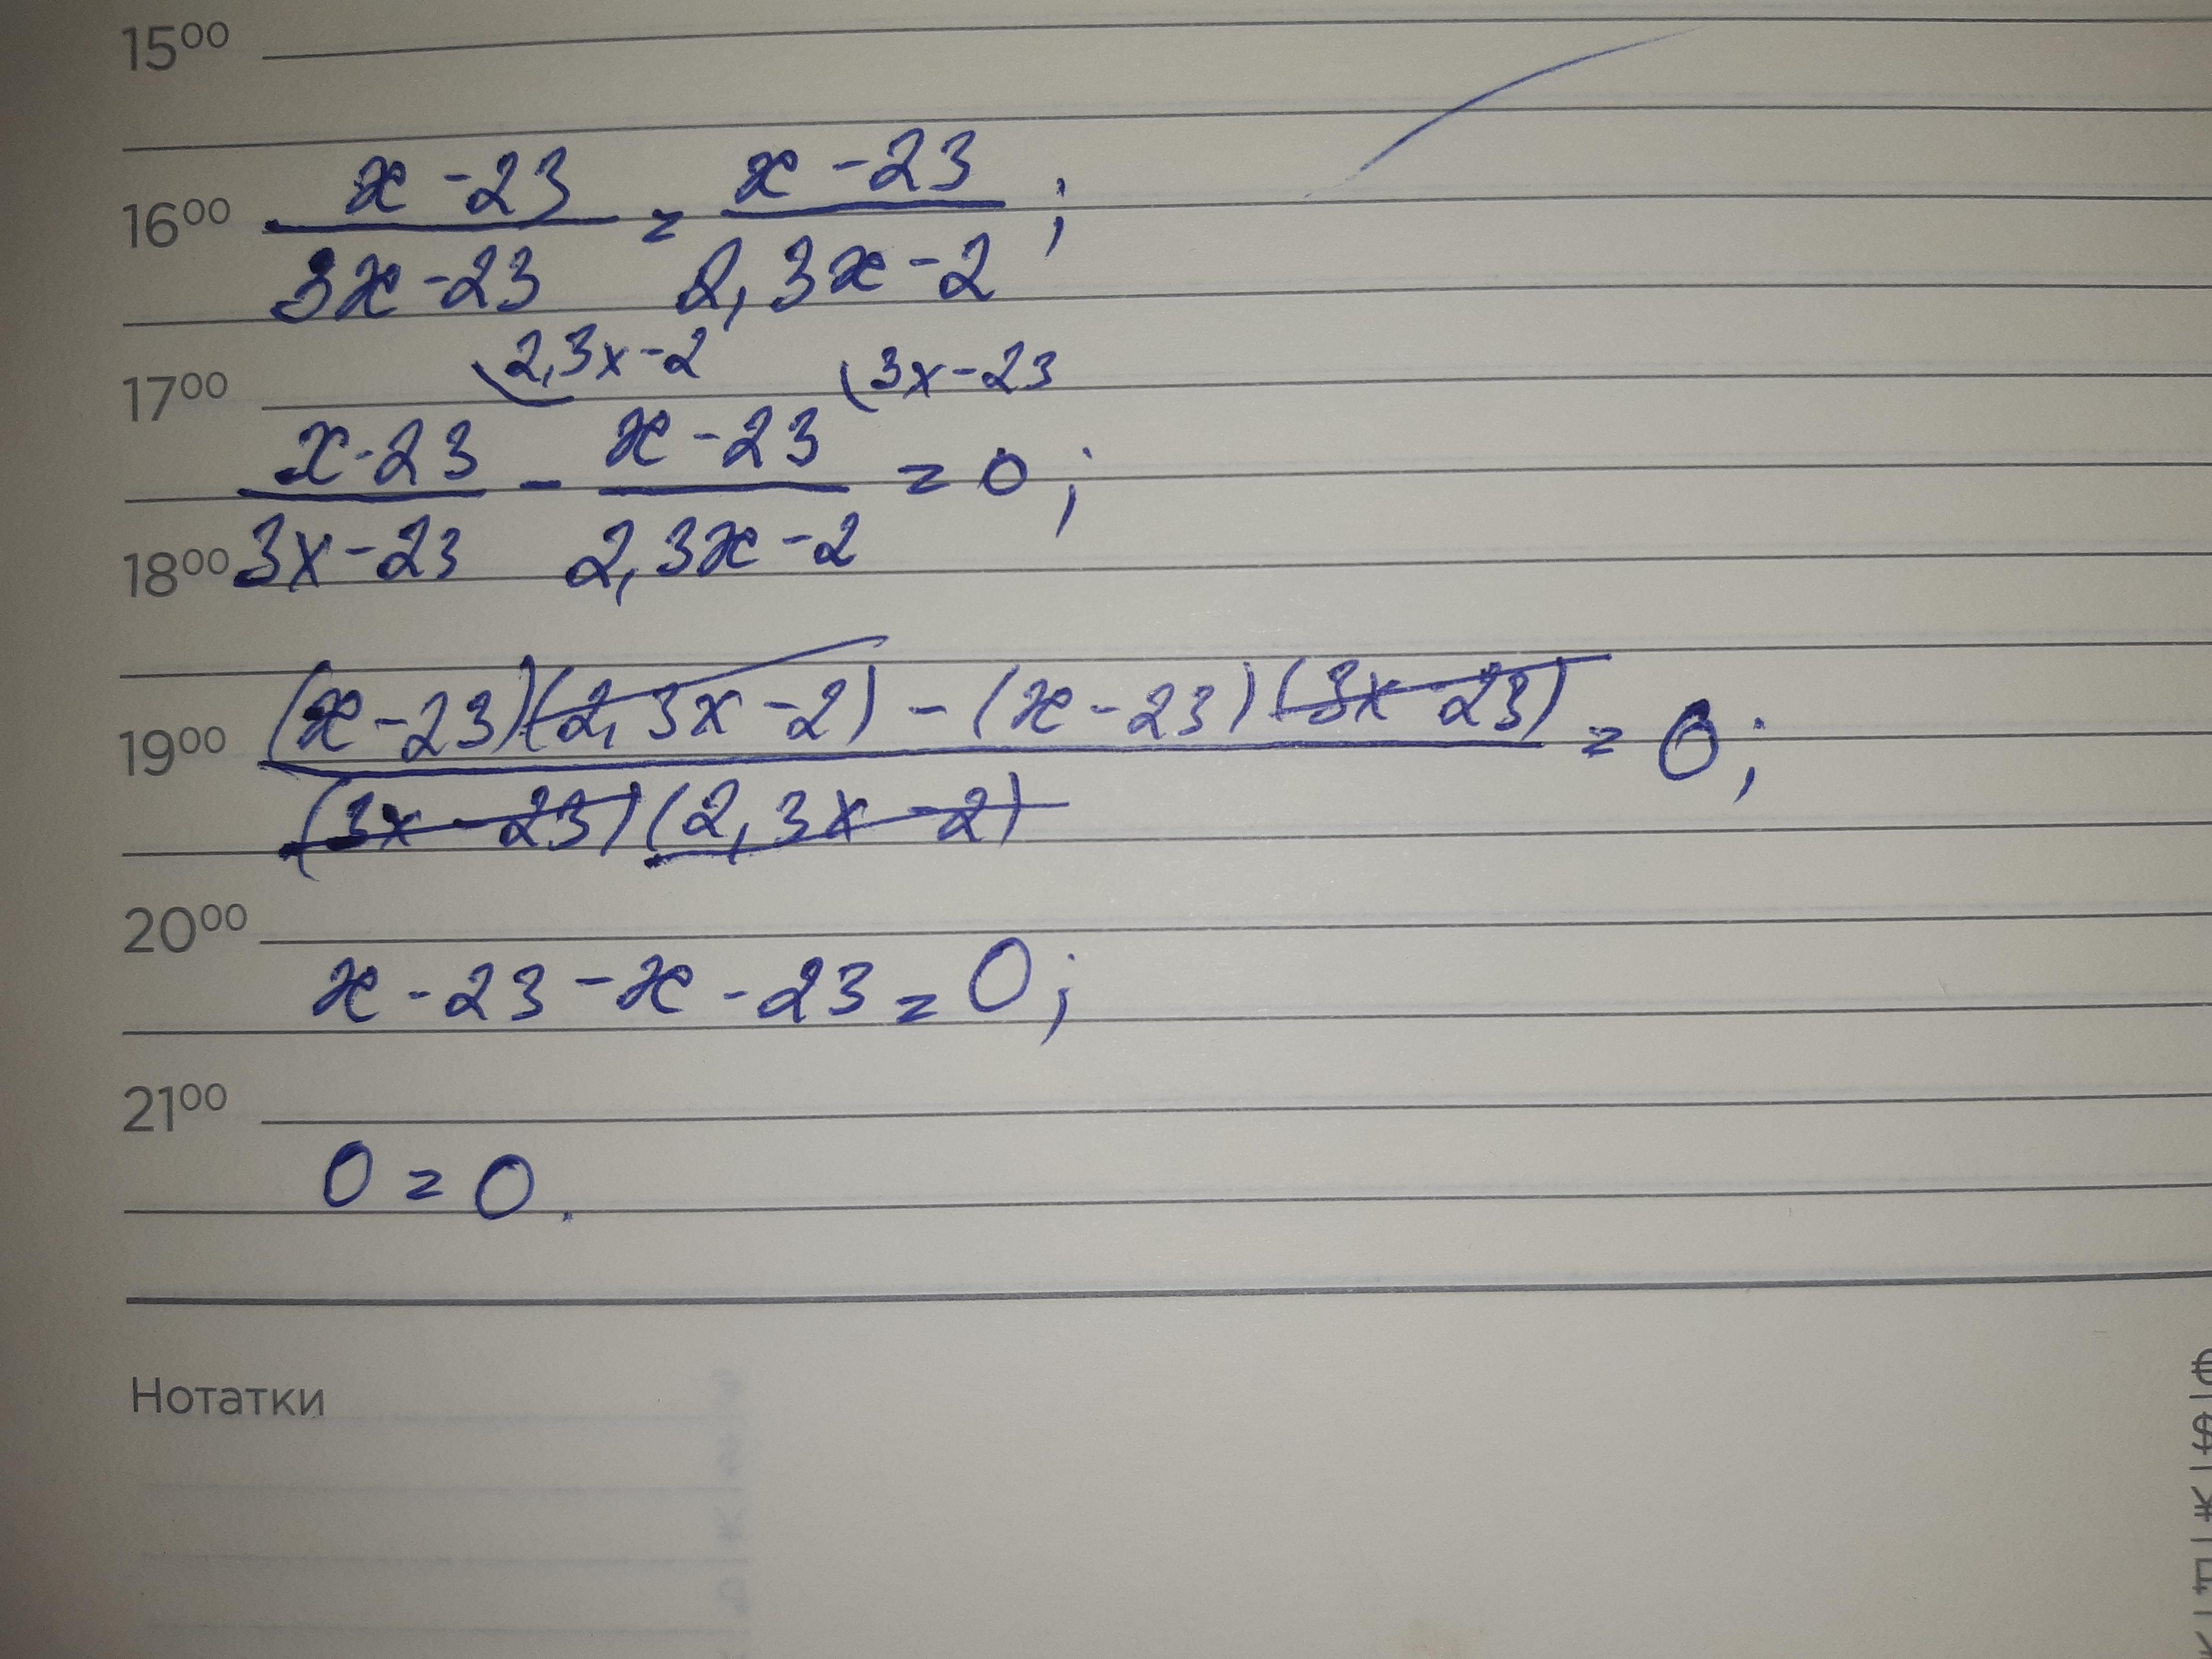 15⁰⁰
16⁰⁰ (x - 23)/(3x - 23) = (x - 23)/(2,3x - 2);
17⁰⁰ (2,3x - 2 (3x - 23
(x - 23)/(3x - 23) - (x - 23)/(2,3x - 2) = 0;
18⁰⁰
19⁰⁰ ((x - 23)(2,3x - 2) - (x - 23)(3x - 23))/((3x - 23)(2,3x - 2)) = 0;
20⁰⁰
x - 23 - x - 23 = 0;
21⁰⁰
0 = 0.
Нотатки
€
$